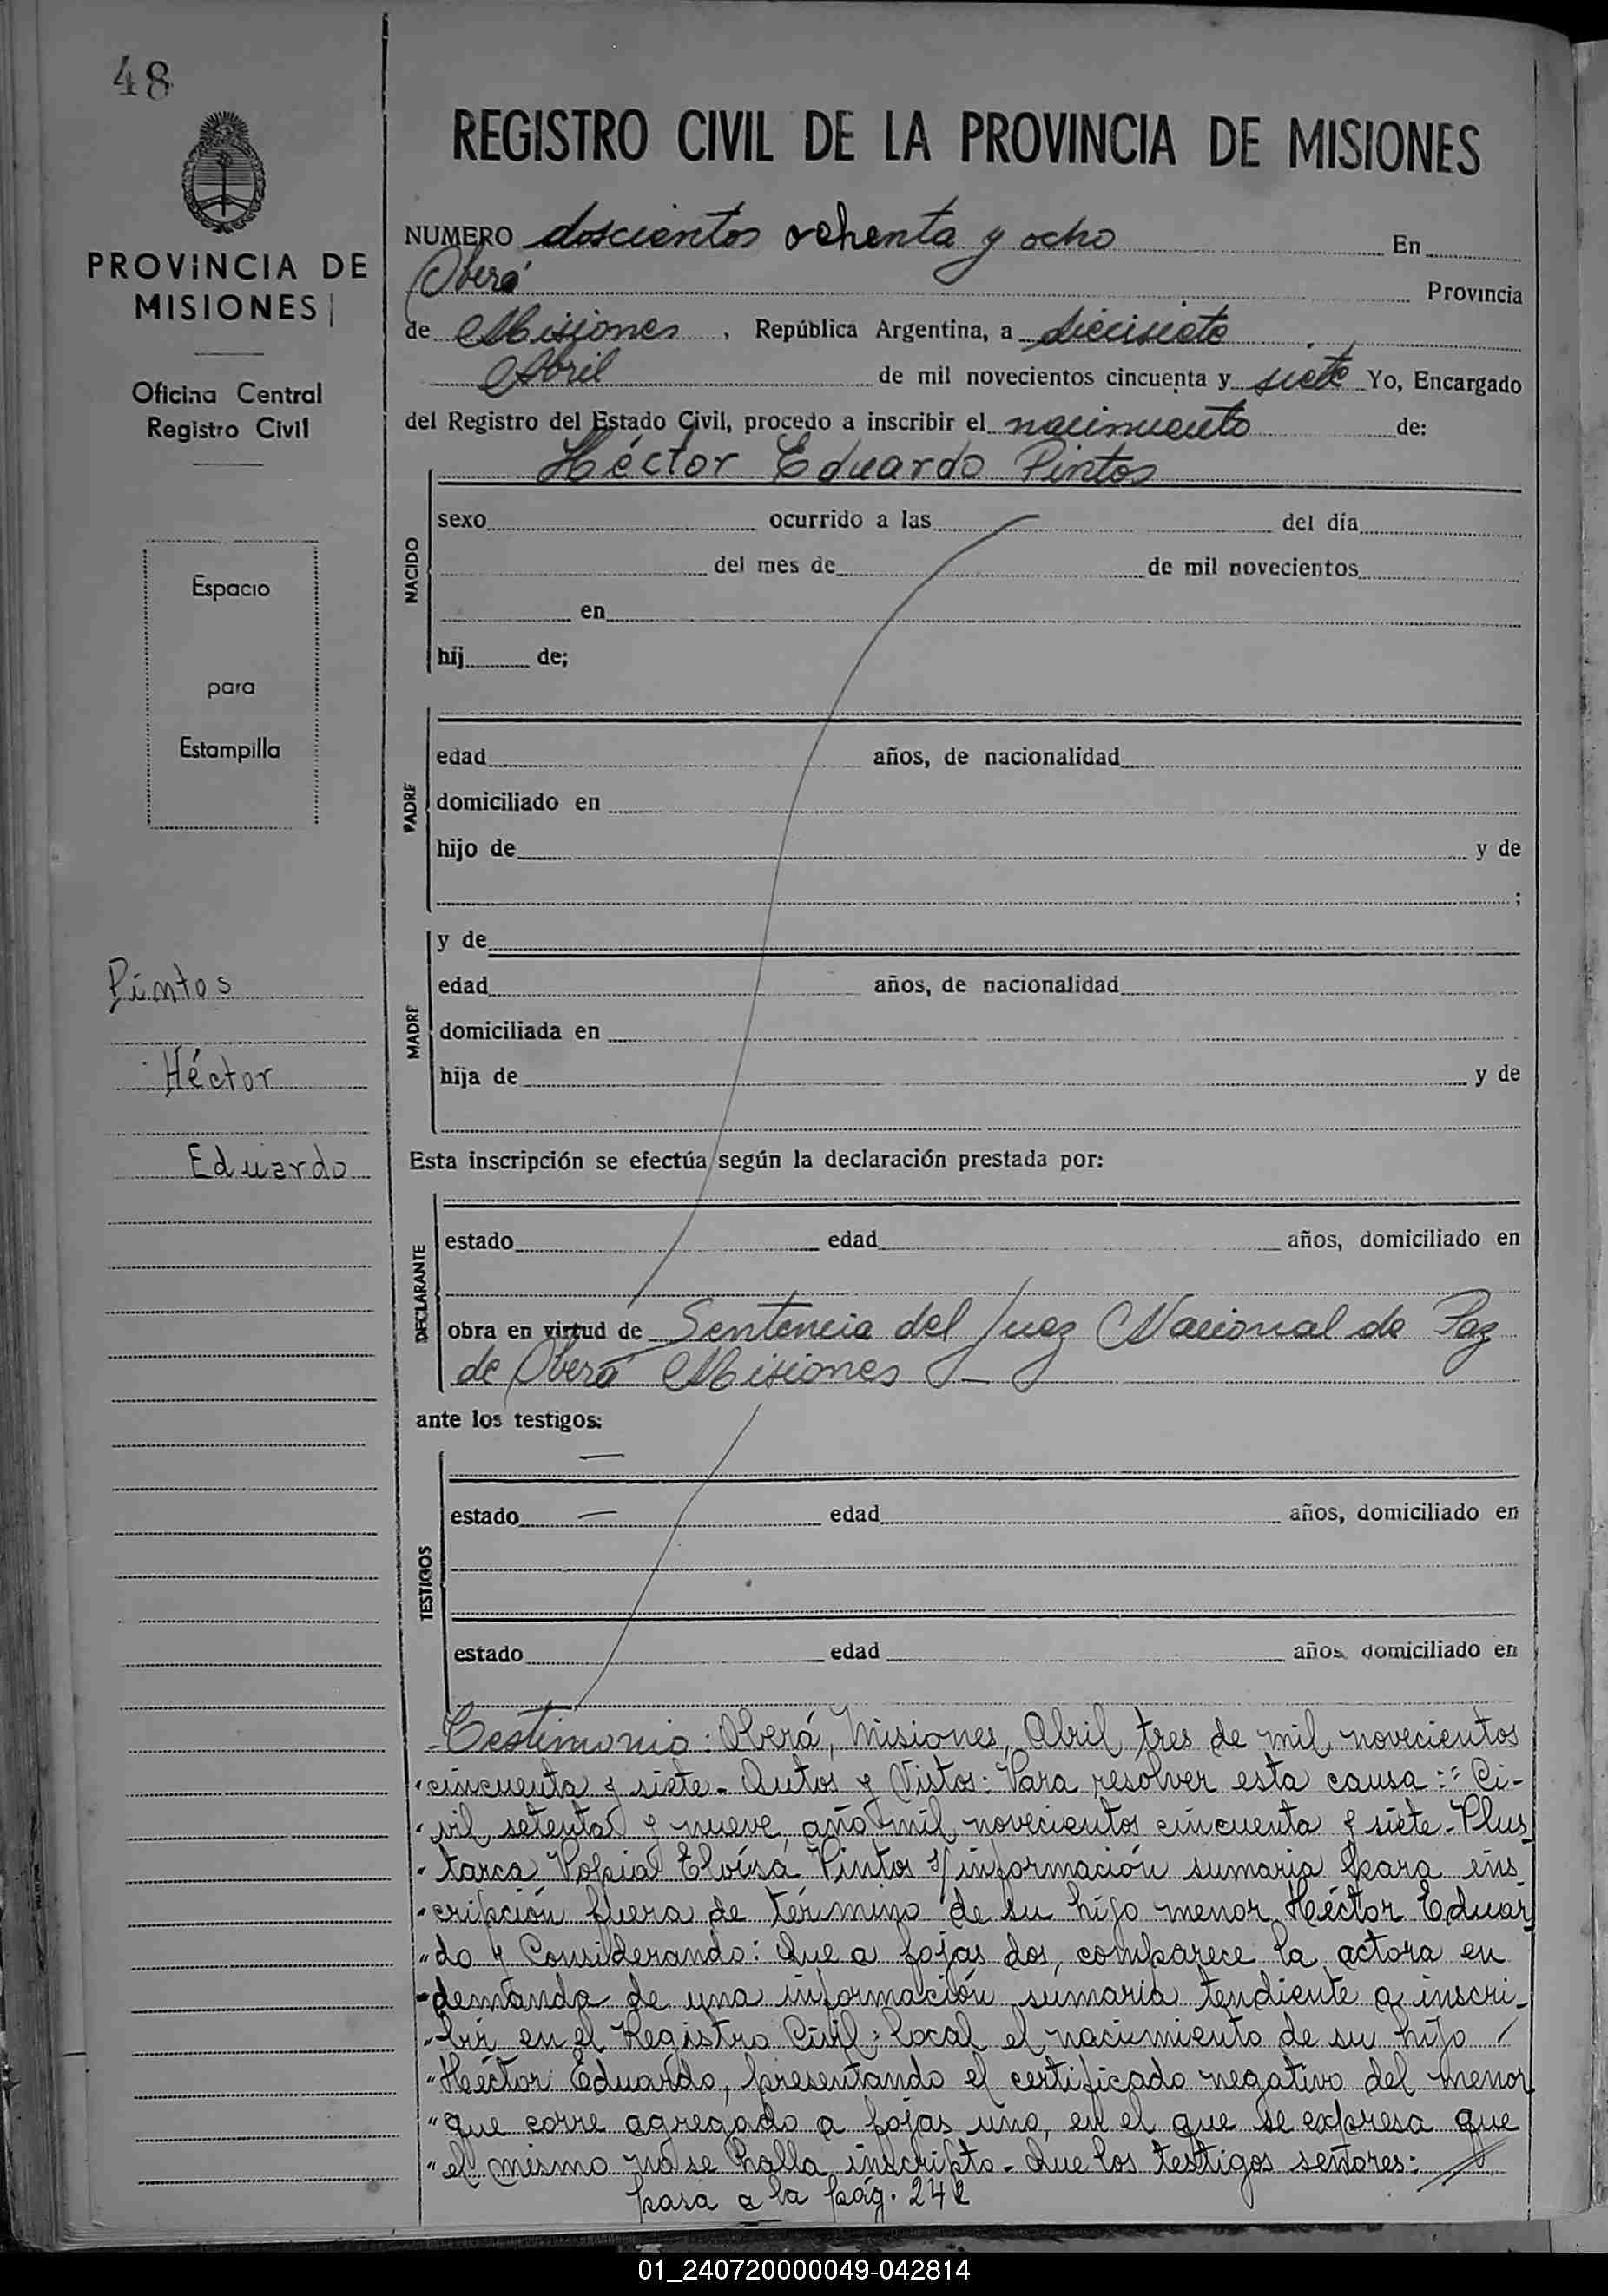 48
PROVINCIA DE
MISIONES
Oficina Central
Registro Civil
Espacio
para
Estampilla
Pintos
Héctor
Eduardo
REGISTRO CIVIL DE LA PROVINCIA DE MISIONES
NUMERO doscientos ochenta y ocho En
Oberá Provincia
de Misiones, República Argentina, a diecisiete
Abril de mil novecientos cincuenta y siete Yo, Encargado
del Registro del Estado Civil, procedo a inscribir el nacimiento de:
Héctor Eduardo Pintos
NACIDO
sexo ocurrido a las del día
del mes de de mil novecientos
en
hij de;
PADRE
edad años, de nacionalidad
domiciliado en
hijo de y de
;
MADRE
y de
edad años, de nacionalidad
domiciliada en
hija de y de
Esta inscripción se efectúa según la declaración prestada por:
DECLARANTE
estado edad años, domiciliado en
obra en virtud de Sentencia del Juez Nacional de Paz
de Oberá Misiones
ante los testigos:
TESTIGOS
estado edad años, domiciliado en
estado edad años, domiciliado en
Testimonio: Oberá, Misiones, Abril tres de mil novecientos
"cincuenta y siete - Autos y Vistos: Para resolver esta causa: Ci-
"vil setenta y nueve, año mil novecientos cincuenta y siete - Plus
"tarca Eloísa Pintos s/ información sumaria para ins
"cripción fuera de término de su hijo menor Héctor Eduar
"do y Considerando: Que a fojas dos, comparece la actora en
"demanda de una información sumaria tendiente a inscri-
"bir en el Registro Civil local el nacimiento de su hijo
"Héctor Eduardo, presentando el certificado negativo del menor
"que corre agregado a fojas uno, en el que se expresa que
"el mismo no se halla inscripto - Que los testigos señores:
pasa a la pág. 242
01_240720000049-042814